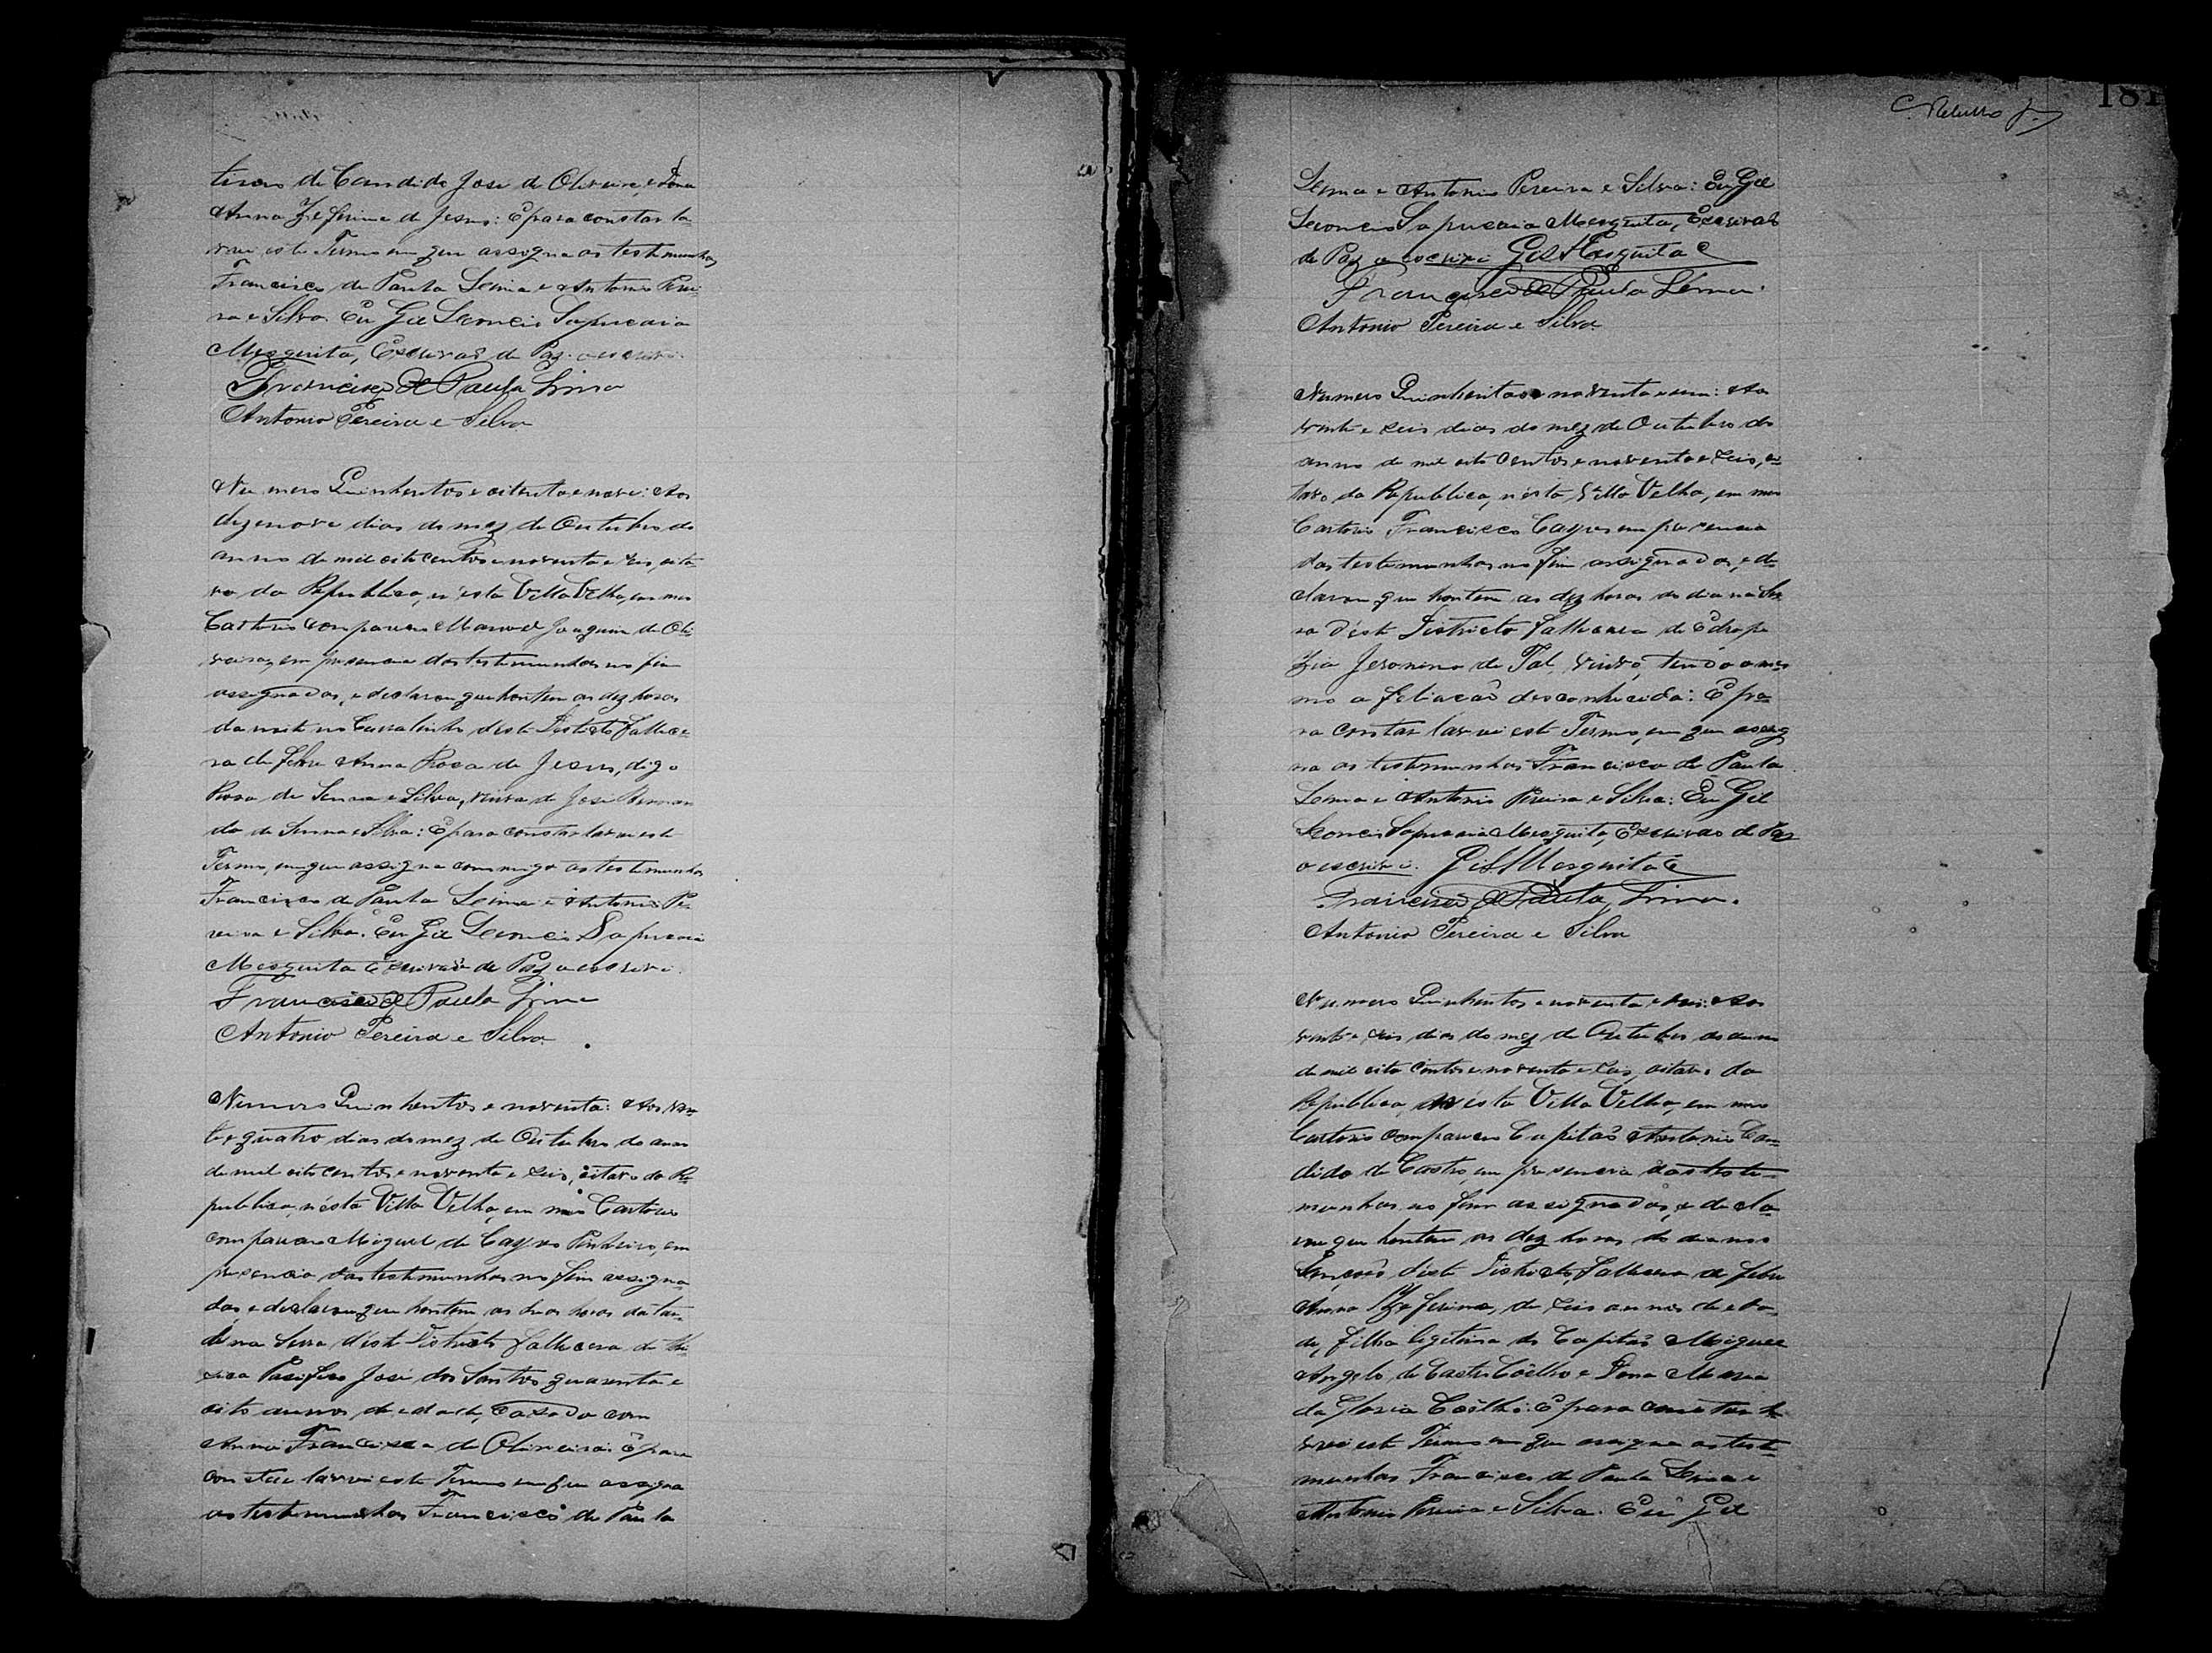 timos de Candido José de Oliveira, e Dona
Anna Zeferina de Jesus: E para constar la-
vrei este Termo em que assigna as testemunhas
Francisco de Paula Lima e Antonio Perei-
ra e Silva. Eu Gil Leoncio Sapucaia
Mesquita, Escrivão de Paz o escrevi.
Francisco de Paula Lima
Antonio Pereira e Silva
Numero Quinhentos e oitenta e nove: Aos
dezenove dias do mez de Outubro do
anno de mil oito centos e noventa e seis, oita-
vo da Republica, n'esta Villa Velha, em meu
Cartorio compareceu Manoel Joaquim de Oli-
veira, em presencia das testemunhas no fim
assignadas, e declarou que hontem as dez horas
da noite no Curralinho d'este Districto fallece-
ra de febre Anna Rosa de Jesus, digo
Rosa de Senna e Silva, viuva de José Bernar
do de Senna e Silva: E para constar lavrei este
Termo, em que assigna commigo as testemunhas
Francisco de Paula Lima e Antonio Pe-
reira e Silva. Eu Gil Leoncio Sapucaia
Mesquita Escrivão de Paz o escrevi.
Francisco de Paula Lima
Antonio Pereira e Silva
Numero Quinhentos e noventa: Aos vin-
te e quatro dias do mez de Outubro do anno
de mil oito centos e noventa e seis, oitavo da Re-
publica, n'esta Villa Velha, em meu Cartorio
compareceu Miguel de Cayres Pinheiro, em
presencia das testemunhas no fim assigna-
das, e declarou que hontem as duas horas da tar-
de na Serra d'este Districto fallecera de thi-
sica Pacifico José dos Santos quarenta e
oito annos de edade, casado com
Anna Francisca de Oliveira: E para
constar lavrei este Termo em que assigna
as testemunhas Francisco de Paula
181
C. Rebello Jr.
Lima e Antonio Pereira e Silva: Eu Gil
Leoncio Sapucaia Mesquita, Escrivão
de Paz o escrevi Gil Mesquita
Francisco de Paula Lima.
Antonio Pereira e Silva
Numero Quinhentos e noventa e um: Aos
vinte e seis dias do mez de Outubro do
anno de mil oito centos e noventa e seis, oi-
tavo da Republica, n'esta Villa Velha, em meu
Cartorio Francisco Cayres em presencia
das testemunhas no fim assignadas, e de-
clarou que hontem as dez horas do dia na Ser-
ra d'este Districto fallecera de edrope
zia Jeronimo de Tal, viuvo, tendo o mes-
mo a feliacão desconhecida: E pa-
ra constar lavrei este Termo, em que assig
na as testemunhas Francisco de Paula
Lima e Antonio Pereira e Silva: Eu Gil
Leoncio Sapucaia Mesquita, Escrivão de Paz
o escrevi. Gil Mesquita
Francisco de Paula Lima.
Antonio Pereira e Silva
Numero Quinhentos e noventa e dois: Aos
vinte e seis dias do mez de Outubro do anno
de mil oito centos e noventa e seis, oitavo da
Republica, n'esta Villa Velha, em meu
Cartorio compareceu Capitão Antonio Can-
dido de Castro, em presencia das teste-
munhas no fim assignadas, e decla-
rou que hontem as dez horas do dia nos
d'este Districto, fallecera de febre
Anna Zeferina, de seis annos de eda-
de, filha legitima do Capitão Miguel
Angelo de Castro Coêlho e Dona Maria
da Gloria Coêlho: E para constar la-
vrei este Termo em que assigna as teste-
munhas Francisco de Paula Lima e
Antonio Pereira e Silva. Eu Gil